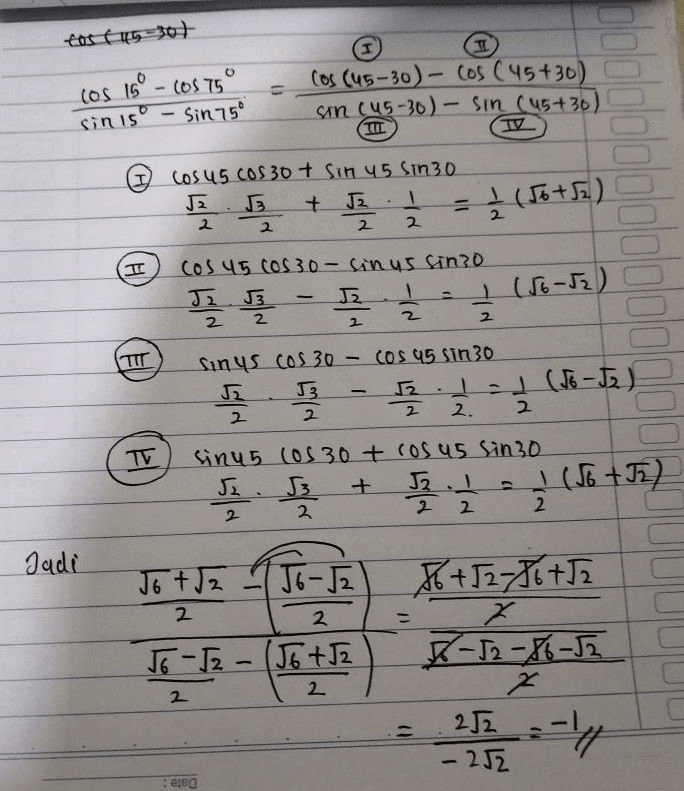 cos(45-30)
Ⓘ Ⓘⓘ
cos 15° - cos 75° / sin 15° - sin 75° = cos (45-30) - cos (45+30) / sin (45-30) - sin (45+30)
III IV
I cos45 cos30 + sin 45 sin30
√2/2 . √3/2 + √2/2 . 1/2 = 1/2 (√6+√2)
II cos 45 cos30 - sin45 sin30
√2/2 . √3/2 - √2/2 . 1/2 = 1/2 (√6-√2)
III sin45 cos30 - cos45 sin30
√2/2 . √3/2 - √2/2 . 1/2. = 1/2 (√6-√2)
IV sin45 cos30 + cos45 sin30
√2/2 . √3/2 + √2/2 . 1/2 = 1/2 (√6+√2)
Jadi
(√6+√2)/2 - ((√6-√2)/2) / (√6-√2)/2 - ((√6+√2)/2) = (√6+√2-√6+√2)/2 / (√6-√2-√6-√2)/2
= 2√2/-2√2 = -1//
Date :